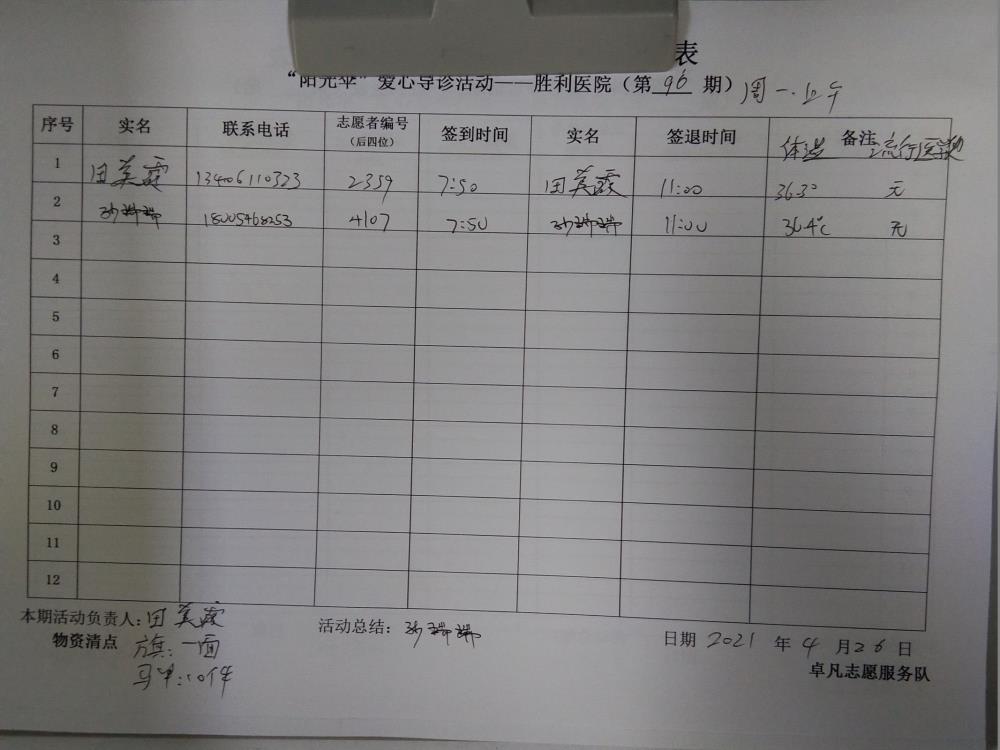 表
“阳光伞”爱心导诊活动——胜利医院（第 96 期）周一.上午
序号 实名 联系电话 志愿者编号（后四位） 签到时间 实名 签退时间 体温 备注 流行区
1 田英霞 13406110323 2359 7:50 田英霞 11:00 36.3° 无
2 瑞瑞 18005468253 4107 7:50 瑞瑞 11:00 36.4℃ 无
3
4
5
6
7
8
9
10
11
12
本期活动负责人：田英霞 活动总结：瑞瑞 日期 2021 年 4 月 26 日
物资清点 旗：一面
马甲：10件
卓凡志愿服务队